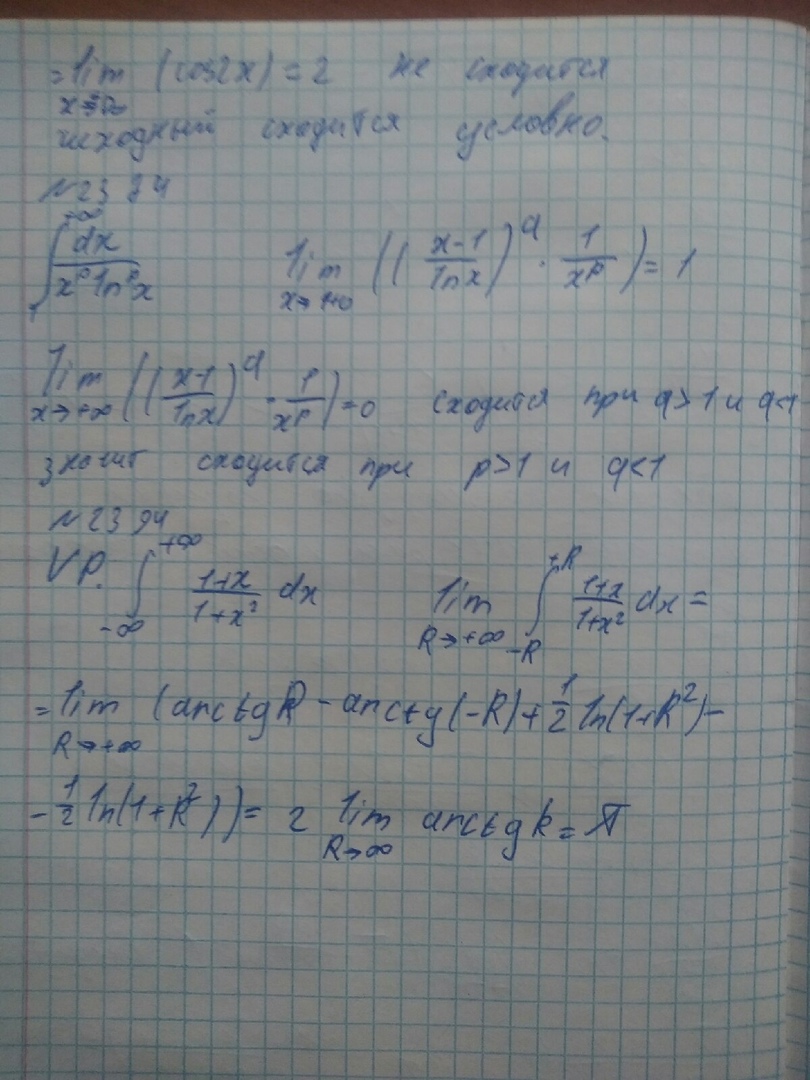 = lim (cos2x) = 2 не сходится
x→∞
исходный сходится условно.
№2374
∫₁^{+∞} dx/(x^p ln^q x) lim_{x→1+0} (((x-1)/ln x)^q · 1/x^p) = 1
lim_{x→+∞} (((x-1)/ln x)^q · 1/x^p) = 0 сходится при q>1 и q<1
значит сходится при p>1 и q<1
№2394
V.P. ∫_{-∞}^{+∞} (1+x)/(1+x²) dx lim_{R→+∞} ∫_{-R}^{+R} (1+x)/(1+x²) dx =
= lim_{R→+∞} (arctgR - arctg(-R) + 1/2 ln(1+R²) -
- 1/2 ln(1+R²)) = 2 lim_{R→∞} arctgR = π